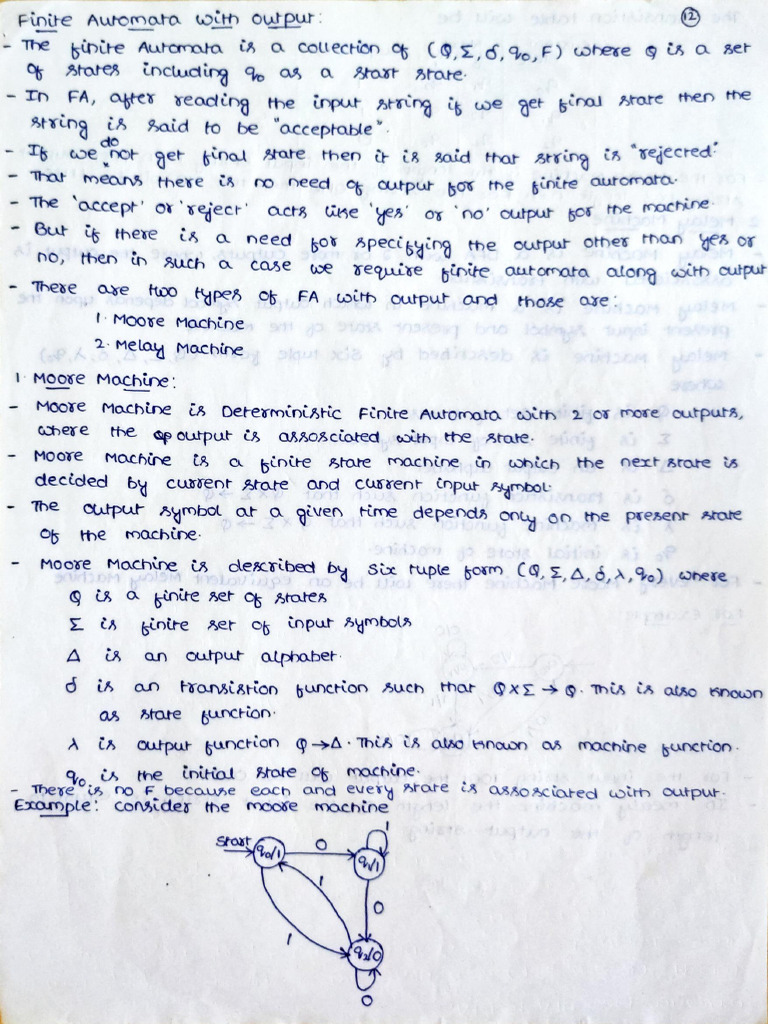 Finite Automata with output: 12
- The finite Automata is a collection of (Q, Σ, δ, q0, F) where Q is a set
of states including q0 as a start state.
- In FA, after reading the input string if we get final state then the
string is said to be "acceptable".
- If we do not get final state then it is said that string is "rejected".
- That means there is no need of output for the finite automata.
- The 'accept' or 'reject' acts like 'yes' or 'no' output for the machine.
- But if there is a need for specifying the output other than yes or
no, then in such a case we require finite automata along with output
- There are two types of FA with output and those are:
1. Moore Machine
2. Melay Machine
1. Moore Machine:
- Moore Machine is Deterministic Finite Automata with 2 or more outputs,
where the output is assosciated with the state.
- Moore Machine is a finite state machine in which the next state is
decided by current state and current input symbol.
- The output symbol at a given time depends only on the present state
of the machine.
- Moore Machine is described by six tuple form (Q, Σ, Δ, δ, λ, q0) where
Q is a finite set of states
Σ is finite set of input symbols
Δ is an output alphabet.
δ is an transistion function such that Q×Σ → Q. This is also known
as state function.
λ is output function Q→Δ. This is also known as machine function.
q0 is the initial state of machine.
- There is no F because each and every state is assosciated with output.
Example: consider the moore machine
Start q0/1 0 q1/1 1
1 0
1 q2/0
0